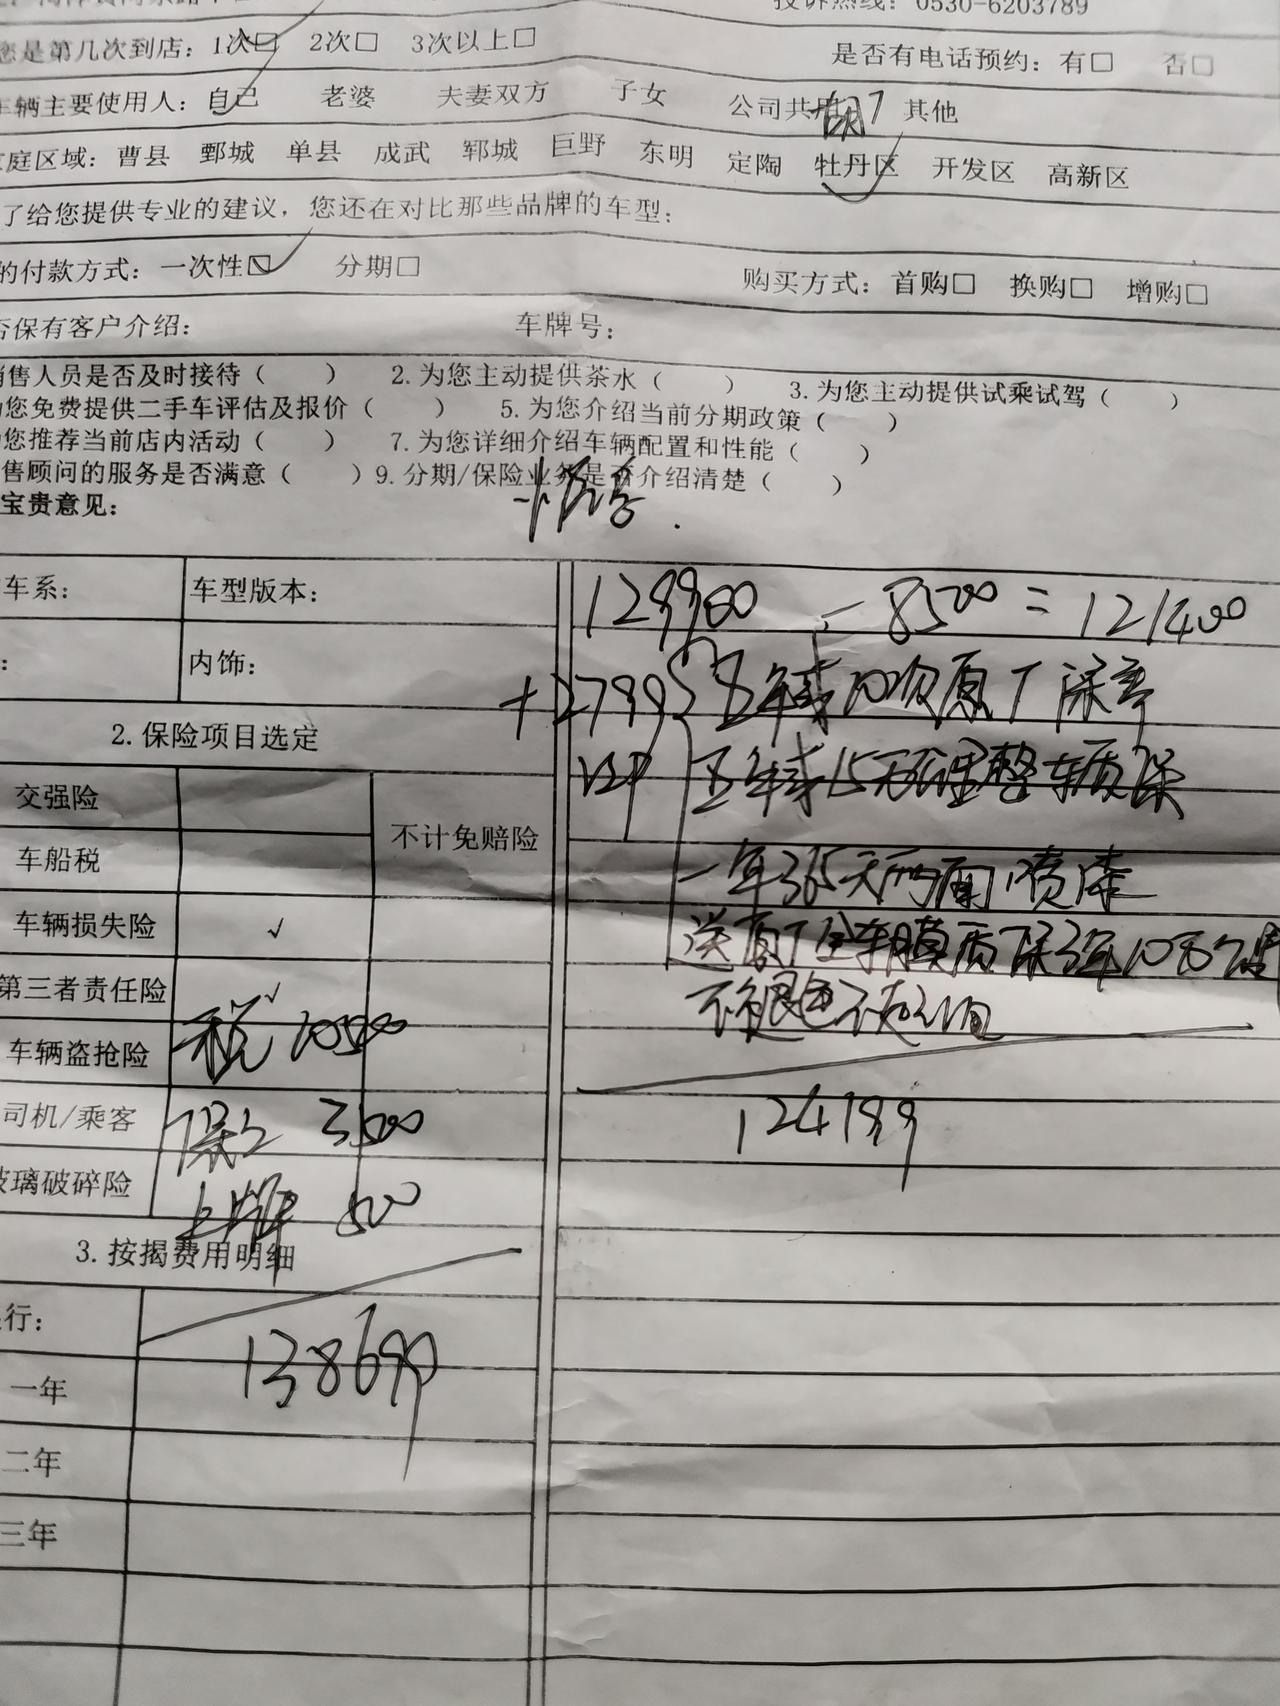 投诉热线: 0530-6203789
您是第几次到店: 1次☑ 2次□ 3次以上□ 是否有电话预约: 有□ 否□
车辆主要使用人: 自己 老婆 夫妻双方 子女 公司共用 其他
家庭区域: 曹县 鄄城 单县 成武 郓城 巨野 东明 定陶 牡丹区 开发区 高新区
了给您提供专业的建议, 您还在对比那些品牌的车型:
的付款方式: 一次性☑ 分期□ 购买方式: 首购□ 换购□ 增购□
否保有客户介绍: 车牌号:
销售人员是否及时接待( ) 2.为您主动提供茶水( ) 3.为您主动提供试乘试驾( )
为您免费提供二手车评估及报价( ) 5.为您介绍当前分期政策( )
您推荐当前店内活动( ) 7.为您详细介绍车辆配置和性能( )
售顾问的服务是否满意( ) 9.分期/保险业务是否介绍清楚( )
宝贵意见:
车系: 车型版本:
129900 - 8500 = 121400
: 内饰:
+ 2799 五年或10次原厂保养
2.保险项目选定
VIP 五年或15万公里整车质保
交强险
不计免赔险
车船税
一年365天两面喷漆
车辆损失险 √
送原厂全车膜质保3年10万公里
第三者责任险 √
不褪色不起泡
税 10500
车辆盗抢险
司机/乘客
保险 3500
124199
玻璃破碎险
上牌 500
3.按揭费用明细
行:
138699
一年
二年
三年